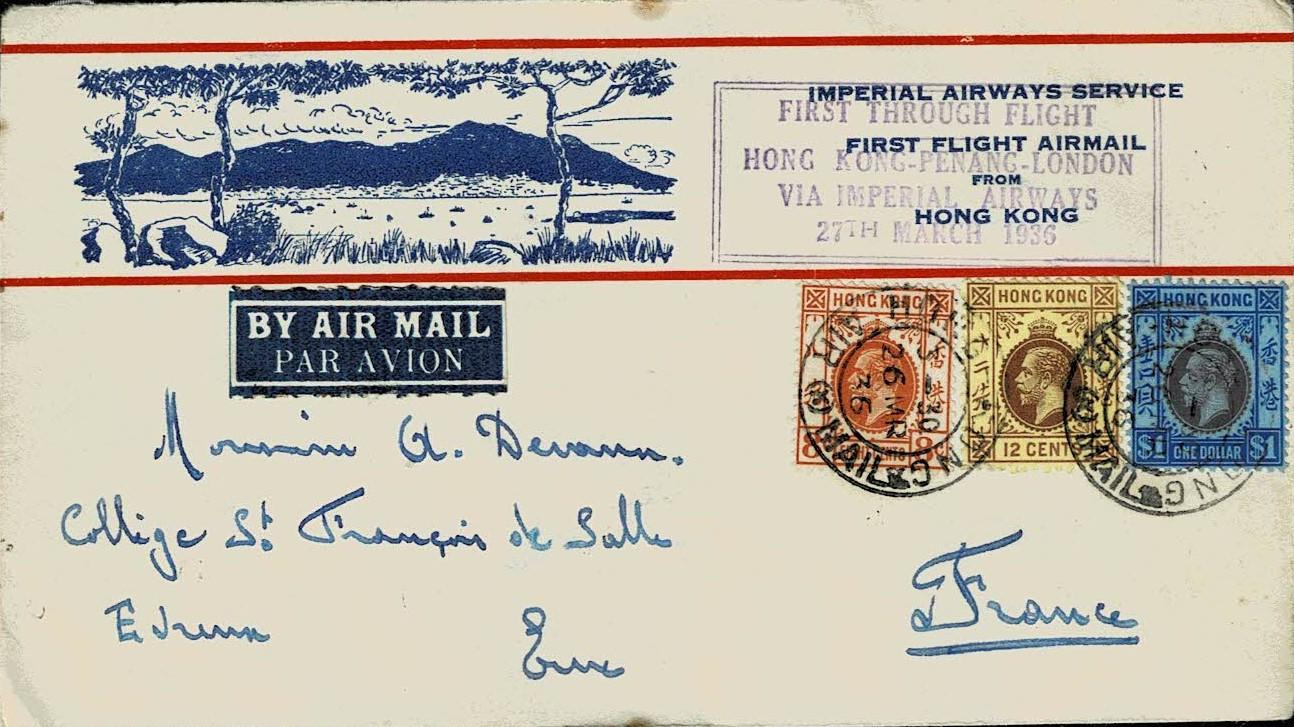 IMPERIAL AIRWAYS SERVICE
FIRST THROUGH FLIGHT
FIRST FLIGHT AIRMAIL
HONG KONG-PENANG-LONDON
FROM
VIA IMPERIAL AIRWAYS
HONG KONG
27TH MARCH 1936
BY AIR MAIL
PAR AVION
HONG KONG
HONG KONG
12 CENT
HONG KONG
香港
ONE DOLLAR
$1 $1
AIR MAIL
26 MR
36
Monsieur A.
Collège St François de Salle
Eure
France